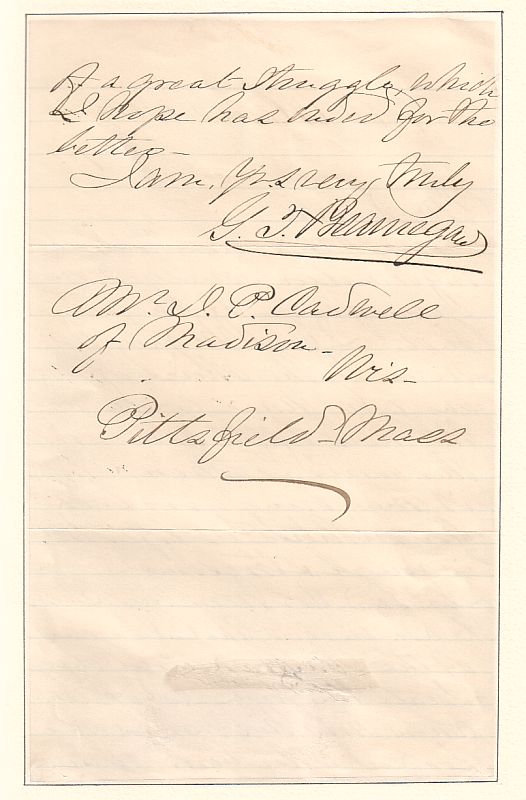 of a great struggle, which
I hope has ended for the
better—
I am, Yrs very truly
G. T. Beauregard
Mr. D. P. Cadwell
of Madison—
Wis—
Pittsfield—Mass